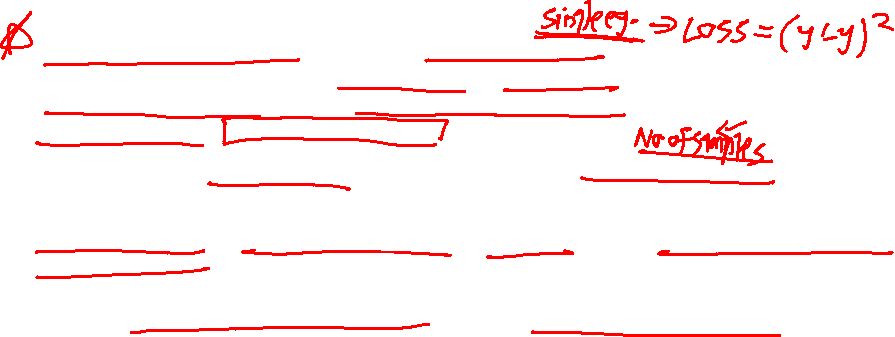 simple eg. ⇒ Loss = (y - y)²
No of samples